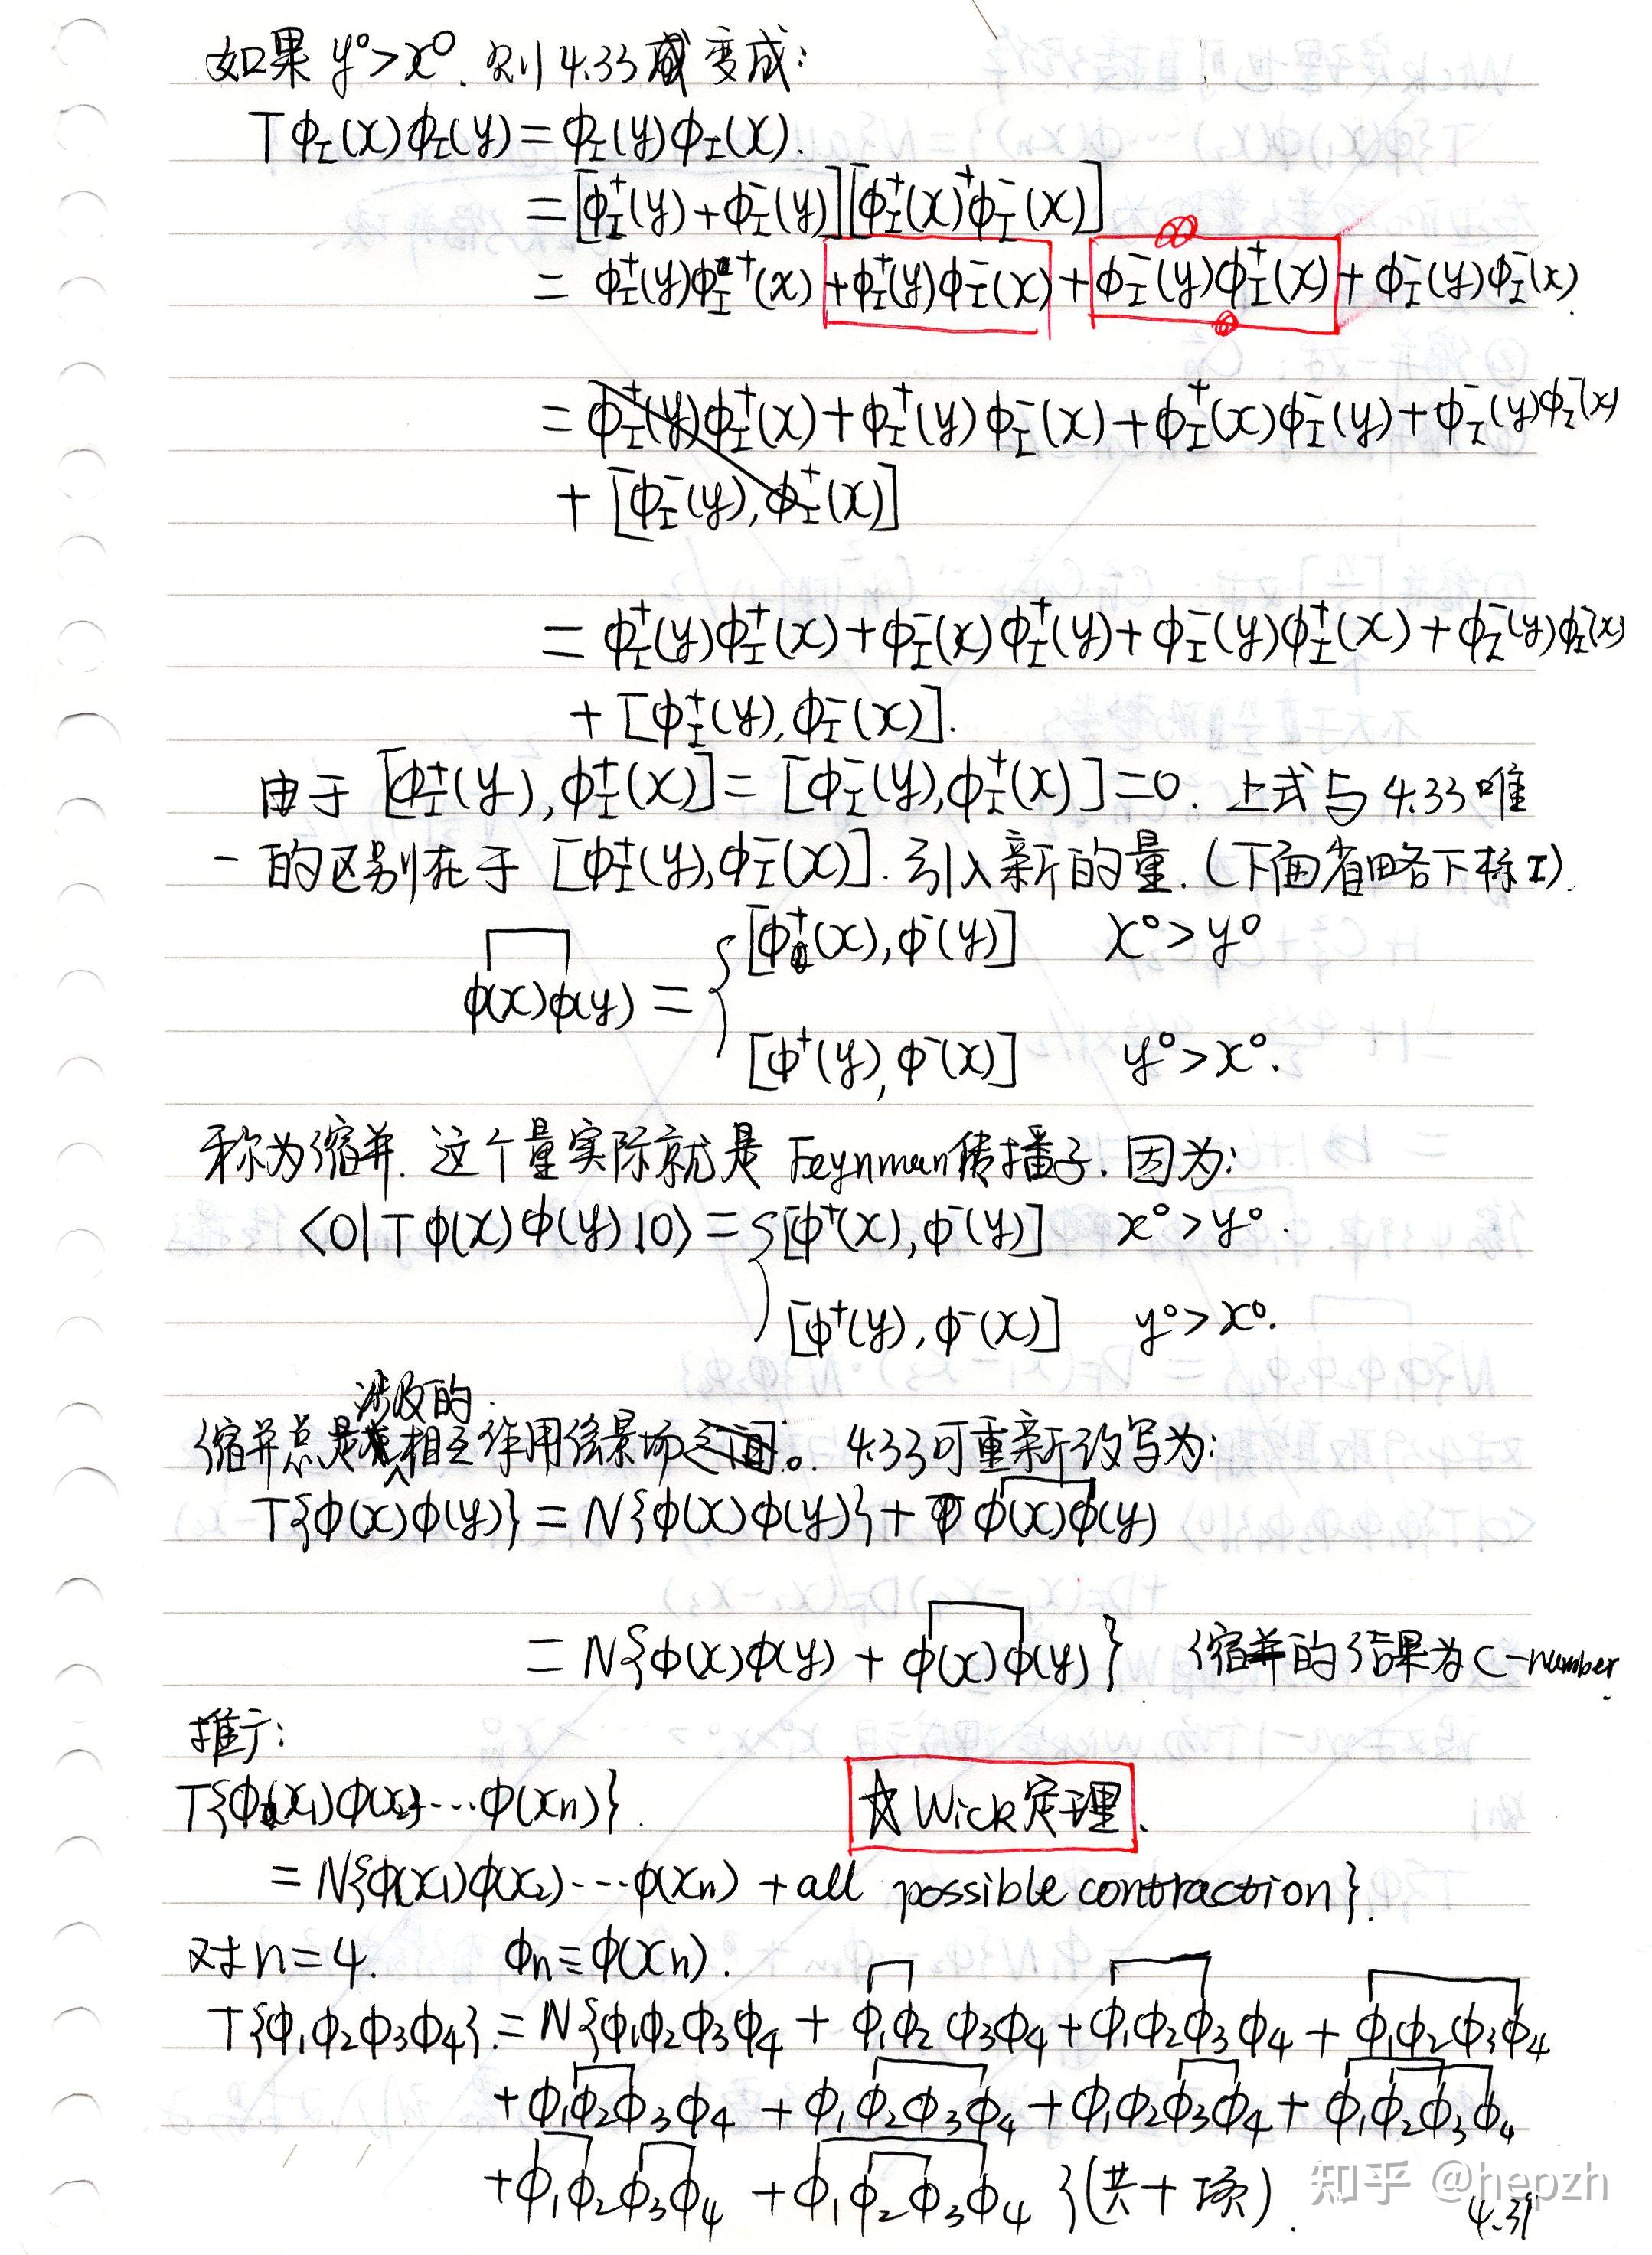 如果 y⁰>x⁰. 则 4.33 变成:
Tϕ_I(x)ϕ_I(y)=ϕ_I(y)ϕ_I(x).
=[ϕ_I⁺(y)+ϕ_I⁻(y)][ϕ_I⁺(x)+ϕ_I⁻(x)]
= ϕ_I⁺(y)ϕ_I⁺(x)+ϕ_I⁺(y)ϕ_I⁻(x)+ϕ_I⁻(y)ϕ_I⁺(x)+ϕ_I⁻(y)ϕ_I⁻(x).
=ϕ_I⁺(y)ϕ_I⁺(x)+ϕ_I⁺(y)ϕ_I⁻(x)+ϕ_I⁺(x)ϕ_I⁻(y)+ϕ_I⁻(y)ϕ_I⁻(x)
+[ϕ_I⁻(y),ϕ_I⁺(x)]
=ϕ_I⁺(y)ϕ_I⁺(x)+ϕ_I⁻(x)ϕ_I⁺(y)+ϕ_I⁻(y)ϕ_I⁺(x)+ϕ_I⁻(y)ϕ_I⁻(x)
+[ϕ_I⁺(y),ϕ_I⁻(x)].
由于 [ϕ_I⁺(y),ϕ_I⁺(x)]=[ϕ_I⁻(y),ϕ_I⁺(x)]=0. 上式与 4.33 唯
一的区别在于 [ϕ_I⁺(y),ϕ_I⁻(x)]. 引入新的量.(下面省略下标I).
[ϕ⁺(x),ϕ⁻(y)] x⁰>y⁰
ϕ(x)ϕ(y)={
[ϕ⁺(y),ϕ⁻(x)] y⁰>x⁰.
称为缩并. 这个量实际就是 Feynman传播子. 因为:
<0|Tϕ(x)ϕ(y)|0>={[ϕ⁺(x),ϕ⁻(y)] x⁰>y⁰.
[ϕ⁺(y),ϕ⁻(x)] y⁰>x⁰.
涉及的
缩并总是相互作用绘景场之间。4.33可重新改写为:
T{ϕ(x)ϕ(y)}=N{ϕ(x)ϕ(y)}+ϕ(x)ϕ(y)
=N{ϕ(x)ϕ(y)+ϕ(x)ϕ(y)} 缩并的结果为C-number.
推广:
T{ϕ(x₁)ϕ(x₂)···ϕ(xn)}. ☆Wick定理.
=N{ϕ(x₁)ϕ(x₂)···ϕ(xn)+all possible contraction}.
对n=4. ϕn≡ϕ(xn).
T{ϕ₁ϕ₂ϕ₃ϕ₄}=N{ϕ₁ϕ₂ϕ₃ϕ₄+ϕ₁ϕ₂ϕ₃ϕ₄+ϕ₁ϕ₂ϕ₃ϕ₄+ϕ₁ϕ₂ϕ₃ϕ₄
+ϕ₁ϕ₂ϕ₃ϕ₄+ϕ₁ϕ₂ϕ₃ϕ₄+ϕ₁ϕ₂ϕ₃ϕ₄+ϕ₁ϕ₂ϕ₃ϕ₄
+ϕ₁ϕ₂ϕ₃ϕ₄+ϕ₁ϕ₂ϕ₃ϕ₄}(共十项).
知乎 @hepzh